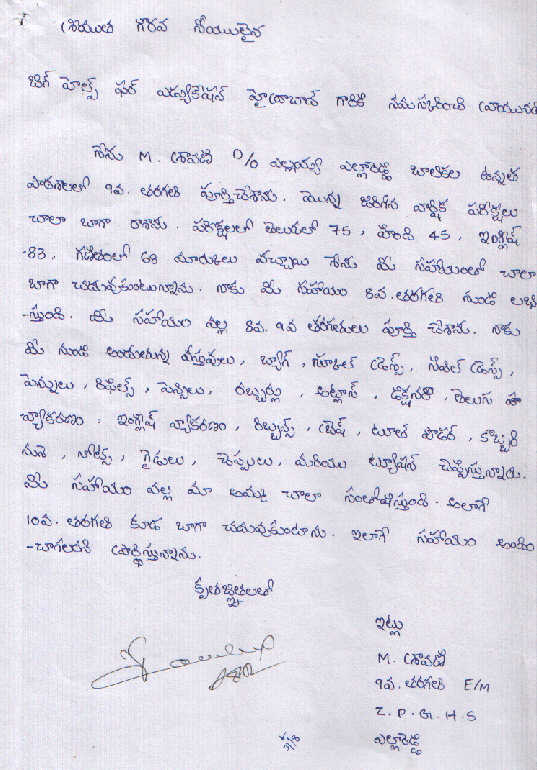 శ్రీయుత గౌరవ నీయులైన
బిగ్ హెల్ప్ ఫర్ ఎడ్యుకేషన్ హైద్రాబాద్ గారికి నమస్కరించి వ్రాయునది
నేను M. శ్రావణి D/o ఎల్లయ్య ఎల్లారెడ్డి బాలికల ఉన్నత
పాఠశాలలో 9వ. తరగతి పూర్తిచేశాను. మొన్న జరిగిన వార్షిక పరీక్షలు
చాలా బాగా రాశాను. పరీక్షలలో తెలుగులో 75, హింది 45, ఇంగ్లీష్
-83, గణితంలో 68 మార్కులు వచ్చాయి నేను మీ సహాయంలో చాలా
బాగా చదువుకుంటున్నాను. నాకు మీ సహాయం 8వ.తరగతి నుండి లభి
-స్తుంది. మీ సహాయం వల్ల 8వ. 9వ తరగతులు పూర్తి చేశాను. నాకు
మీ నుండి అందుతున్న వస్తువులు, బ్యాగ్, స్కూల్ డ్రెస్స్, సివిల్ డ్రెస్స్,
పెన్నులు, రీఫిల్స్, పెన్సిలు, రబ్బర్లు, అట్లాస్, డిక్షనరీ, తెలుగు
వ్యాకరణం, ఇంగ్లీష్ వ్యాకరణం, రిబ్బన్స్, బ్రష్, టూత్ పౌడర్, కొబ్బరి
నునె, నోట్స్, గైడులు, చెప్పులు, మరియు ట్యూషన్ చెప్పిస్తున్నారు.
మీ సహాయం వల్ల మా అమ్మ చాలా సంతోషిస్తుంది. అలాగే
10వ. తరగతి కూడ బాగా చదువుకుంటాను. ఇలాగే సహాయం అందిం
-చాగలరని ప్రార్థిస్తున్నాను.
కృతజ్ఞతలతో
ఇట్లు
M. శ్రావణి
9వ. తరగతి E/M
Z. P. G. H. S
ఎల్లారెడ్డి